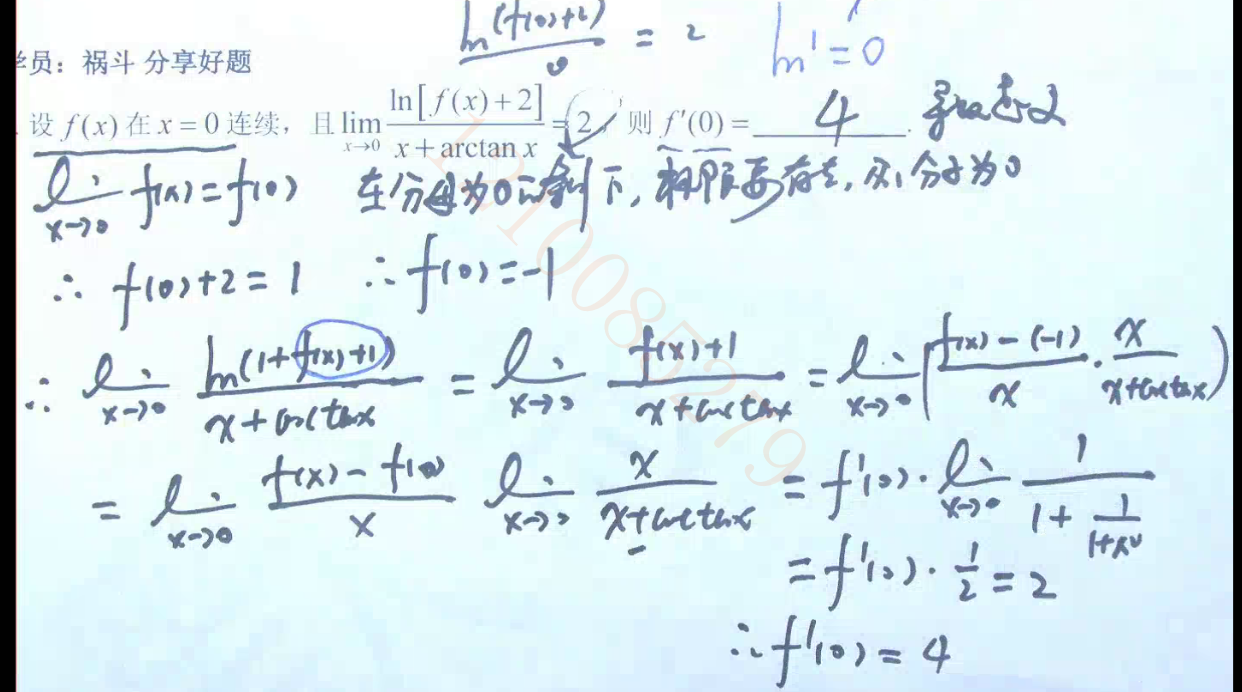 ln(f(0)+2)/0 = 2 ln1=0
学员：祸斗 分享好题
设 f(x) 在 x = 0 连续，且 lim x→0 ln[f(x)+2]/(x + arctan x) = 2，则 f′(0) = 4 . 导数定义
lim x→0 f(x) = f(0) 在分母为0的条件下，极限要存在，则分子为0
∴ f(0)+2 = 1 ∴ f(0) = -1
∴ lim x→0 ln(1+f(x)+1)/(x+arctanx) = lim x→0 (f(x)+1)/(x+arctanx) = lim x→0 ((f(x)-(-1))/x · x/(x+arctanx))
= lim x→0 (f(x)-f(0))/x lim x→0 x/(x+arctanx) = f′(0) · lim x→0 1/(1+1/(1+x²))
= f′(0) · 1/2 = 2
∴ f′(0) = 4
1210085279